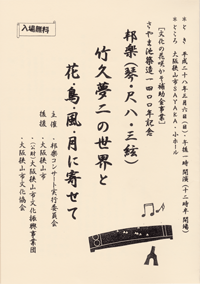 ※とき 平成二十八年三月六日(日)午後一時 開演(十二時半 開場)
※ところ 大阪狭山市SAYAKA・小ホール
[文化の花咲かそ補助金事業]
さやま池築造一四〇〇年記念
邦楽(琴・尺八・三絃)
竹久夢二の世界と
花・鳥・風・月に寄せて
主催 邦楽コンサート実行委員会
後援 ・大阪狭山市
・(公財)大阪狭山市文化振興事業団
・大阪狭山市文化協会
入場無料